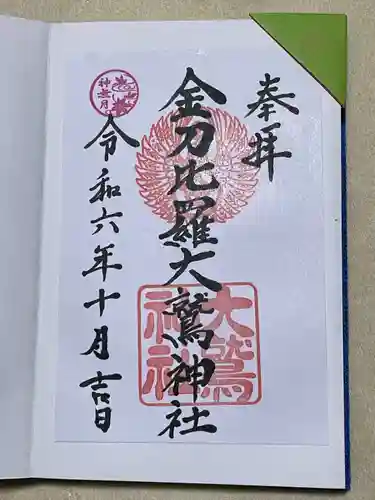 奉拝
金刀比羅大鷲神社
大鷲
神社
令和六年十月吉日
神無月